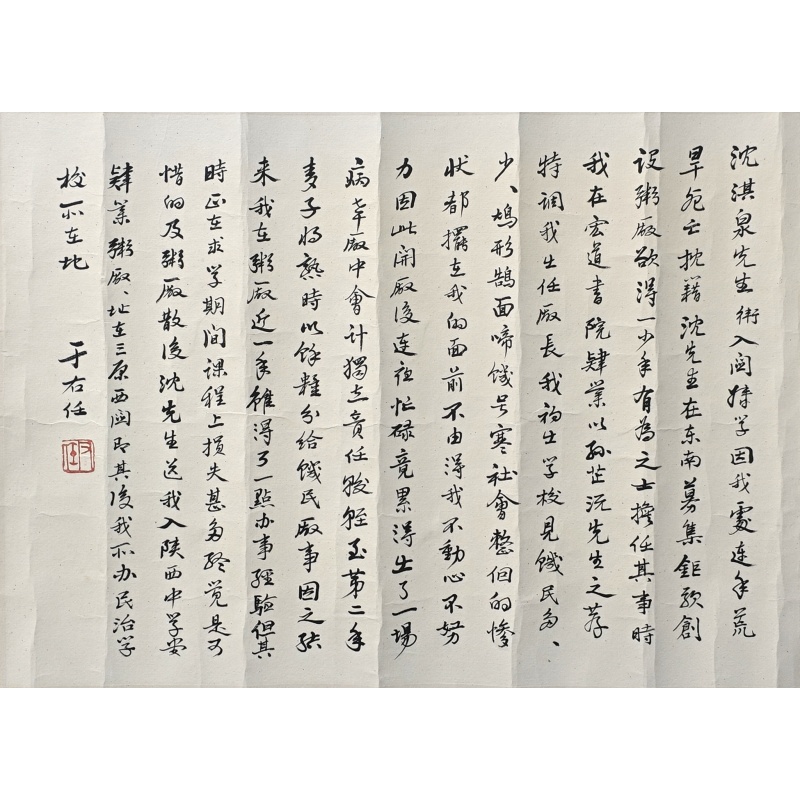 沈淇泉先生衔入関督学因我處連年荒
旱死亡枕籍沈先生在东南募集鉅款創
设粥厰欲得一少年有為之士擔任其事時
我在宏道書院肄業以孙芷沅先生之荐
特调我出任厰長我初出学校見饑民多、
少、鳩形鵠面啼饑号寒社會整個的惨
状都擺在我的面前不由得我不動心不努
力因此開厰後連夜忙碌竟累得出了一場
病幸厰中會計獨立責任較輕至第二年
麦子将熟時以餘糧分给饑民厰事因之结
来我在粥厰近一年雖得了一點办事經驗但其
時正在求学期間课程上損失甚多終觉是可
惜的及粥厰散後沈先生送我入陕西中学安
肄業粥厰址在三原西関即其後我所办民治学
校所在地
于右任